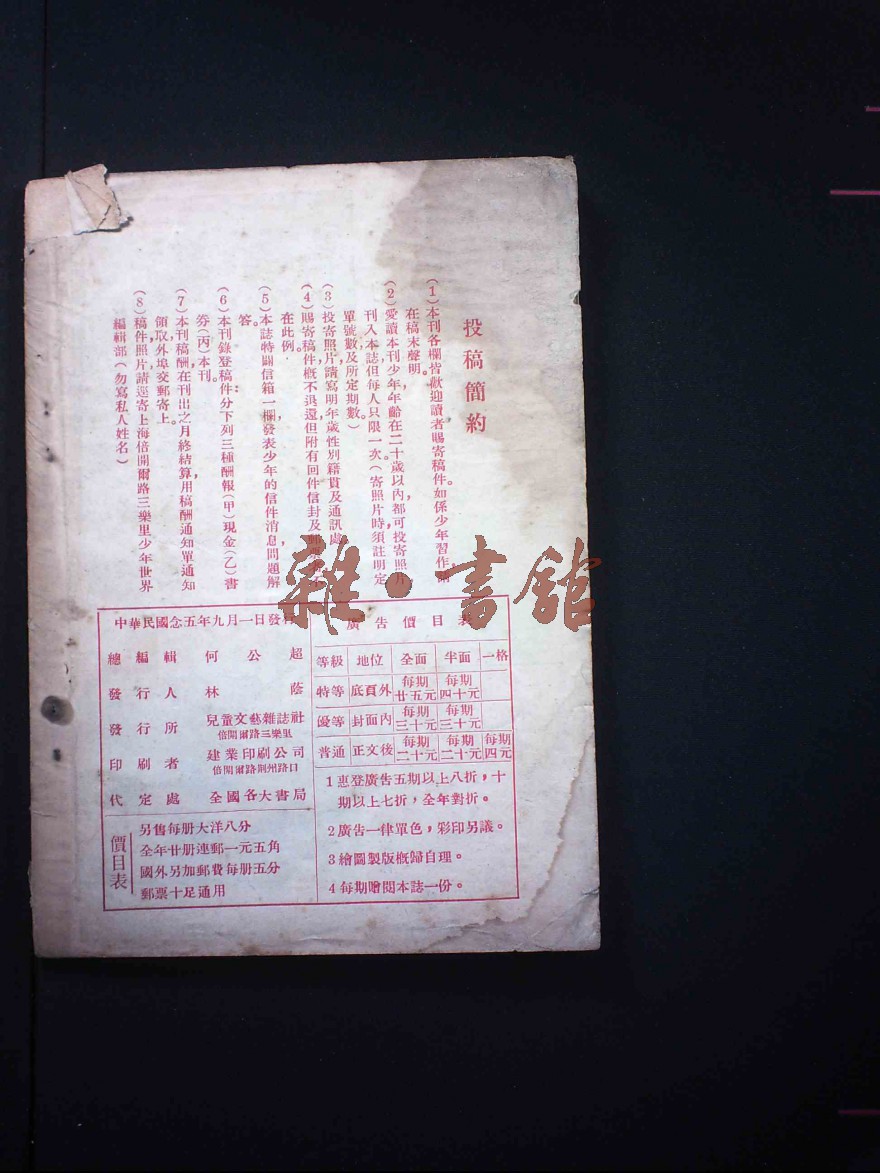 投稿簡約
(1)本刊各欄皆歡迎讀者賜寄稿件。如係少年習作
在稿末聲明。
(2)愛讀本刊少年年齡在二十歲以內,都可投寄照片,
刊入本誌但每人只限一次。(寄照片時,須註明定
單號數及所定期數。)
(3)投寄照片,請寫明年歲性別籍貫及通訊處。
(4)賜寄稿件,概不退還,但附有回件信封及郵票者不
在此例。
(5)本誌特闢信箱一欄,發表少年的信件消息,問題解
答。
(6)本刊錄登稿件分下列三種酬報:(甲)現金(乙)書
券(丙)本刊。
(7)本刊稿酬,在刊出之月終結算,用稿酬通知單通知
領取,外埠交郵寄上。
(8)稿件,照片,請逕寄上海倍開爾路三樂里少年世界
編輯部(勿寫私人姓名)
雜·書館
中華民國念五年九月一日發行
總編輯 何公超
發行人 林蔭
發行所 兒童文藝雜誌社
倍開爾路三樂里
印刷者 建業印刷公司
倍開爾路荆州路口
代定處 全國各大書局
價目表
另售每册大洋八分
全年廿册連郵一元五角
國外另加郵費每册五分
郵票十足通用
廣告價目表
等級 地位 全面 半面 一格
特等 底頁外 每期廿五元 每期四十元
優等 封面內 每期三十元 每期三十元
普通 正文後 每期二十元 每期二十元 每期四元
1 惠登廣告五期以上八折,十
期以上七折,全年對折。
2 廣告一律單色,彩印另議。
3 繪圖製版概歸自理。
4 每期贈閱本誌一份。